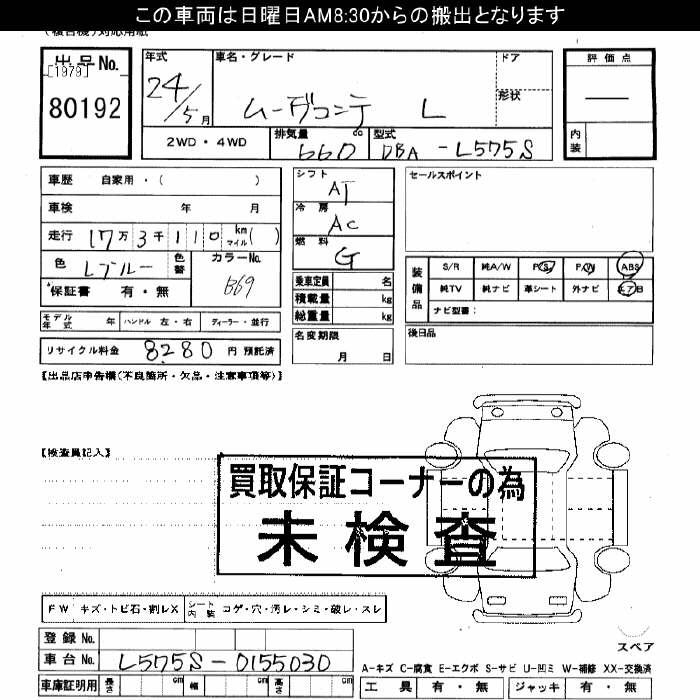 この車両は日曜日AM8:30からの搬出となります
(複合機)対応用紙
出品No.
[1979]
80192
年式
24/5月
車名・グレード
ムーヴコンテ L
ドア
形状
評価点
内装
2WD・4WD
排気量 660 cc
型式 DBA-L575S
車歴 自家用・( )
車検 年 月
走行 17万3千110 km マイル( )
色 Lブルー 色替 カラーNo. B69
保証書 有・無
シフト AT
冷房 AC
燃料 G
乗車定員 名
積載量 kg
総重量 kg
セールスポイント
装備品
S/R 純A/W P/S P/W ABS
純TV 純ナビ 革シート 外ナビ エアB
ナビ型番:
モデル年式 年 ハンドル 左・右 ディーラー・並行
リサイクル料金 8280 円 預託済
名変期限
月 日
後日品
【出品店申告欄(不良箇所・欠品・注意事項等)】
【検査員記入】
買取保証コーナーの為
未検査
FW キズ・トビ石・割レX シート内装 コゲ・穴・汚レ・シミ・破レ・スレ
登録No.
車台No. L575S-0155030
車庫証明用 長さ cm 幅 cm 高さ cm
スペア
A-キズ C-腐食 E-エクボ S-サビ U-凹ミ W-補修 XX-交換済
工具 有・無 ジャッキ 有・無